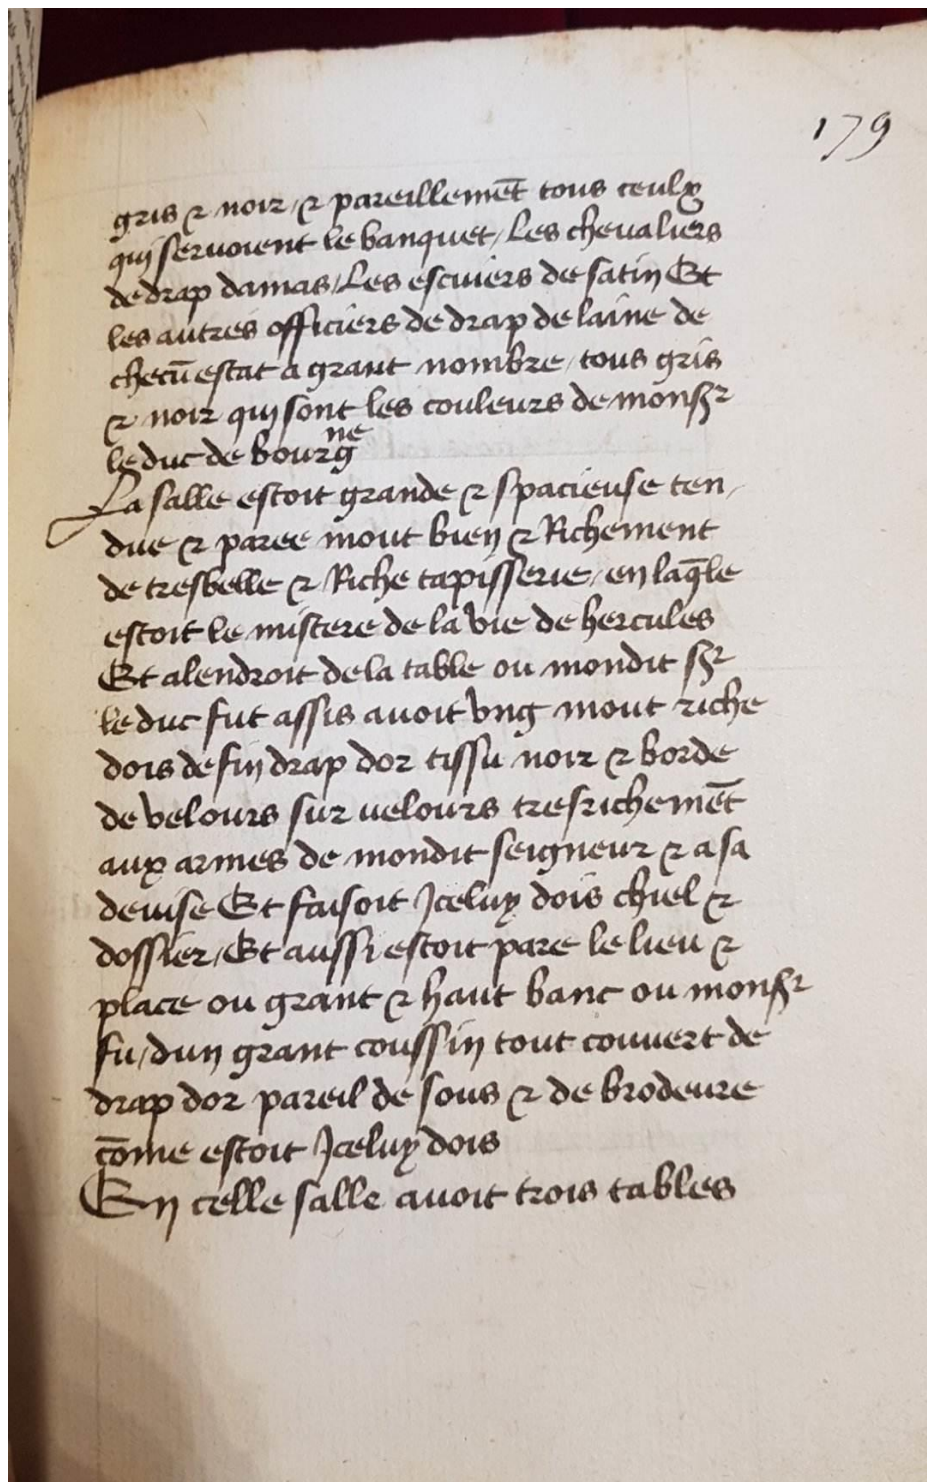 179
gris & noir / & pareillemēt tous ceulx
qui seruoient le banquet / Les cheualiers
de drap damas / Les escuiers de satin Et
les autres officiers de drap de laine de
checūn estat a grant nombre / tous gris
& noir qui sont les couleurs de monsr
le duc de bourgne
La salle estoit grande & spacieuse ten /
due & paree mout bien & Richement
de tresbelle & Riche tapisserie / en laq̄le
estoit le mistere de la vie de hercules
Et alendroit de la table ou mondit sr
le duc fut assis auoit vng mout riche
dois de fin drap dor tissu noir & borde
de velours sur uelours tresrichemēt
aux armes de mondit seigneur & a sa
deuise Et faisoit Jceluy dois chiel &
dossier / Et aussi estoit pare le lieu &
place ou grant & haut banc ou monsr
fu / dun grant coussin tout couuert de
drap dor pareil de sous & de brodeure
cōme estoit Jceluy dois
En celle salle auoit trois tables